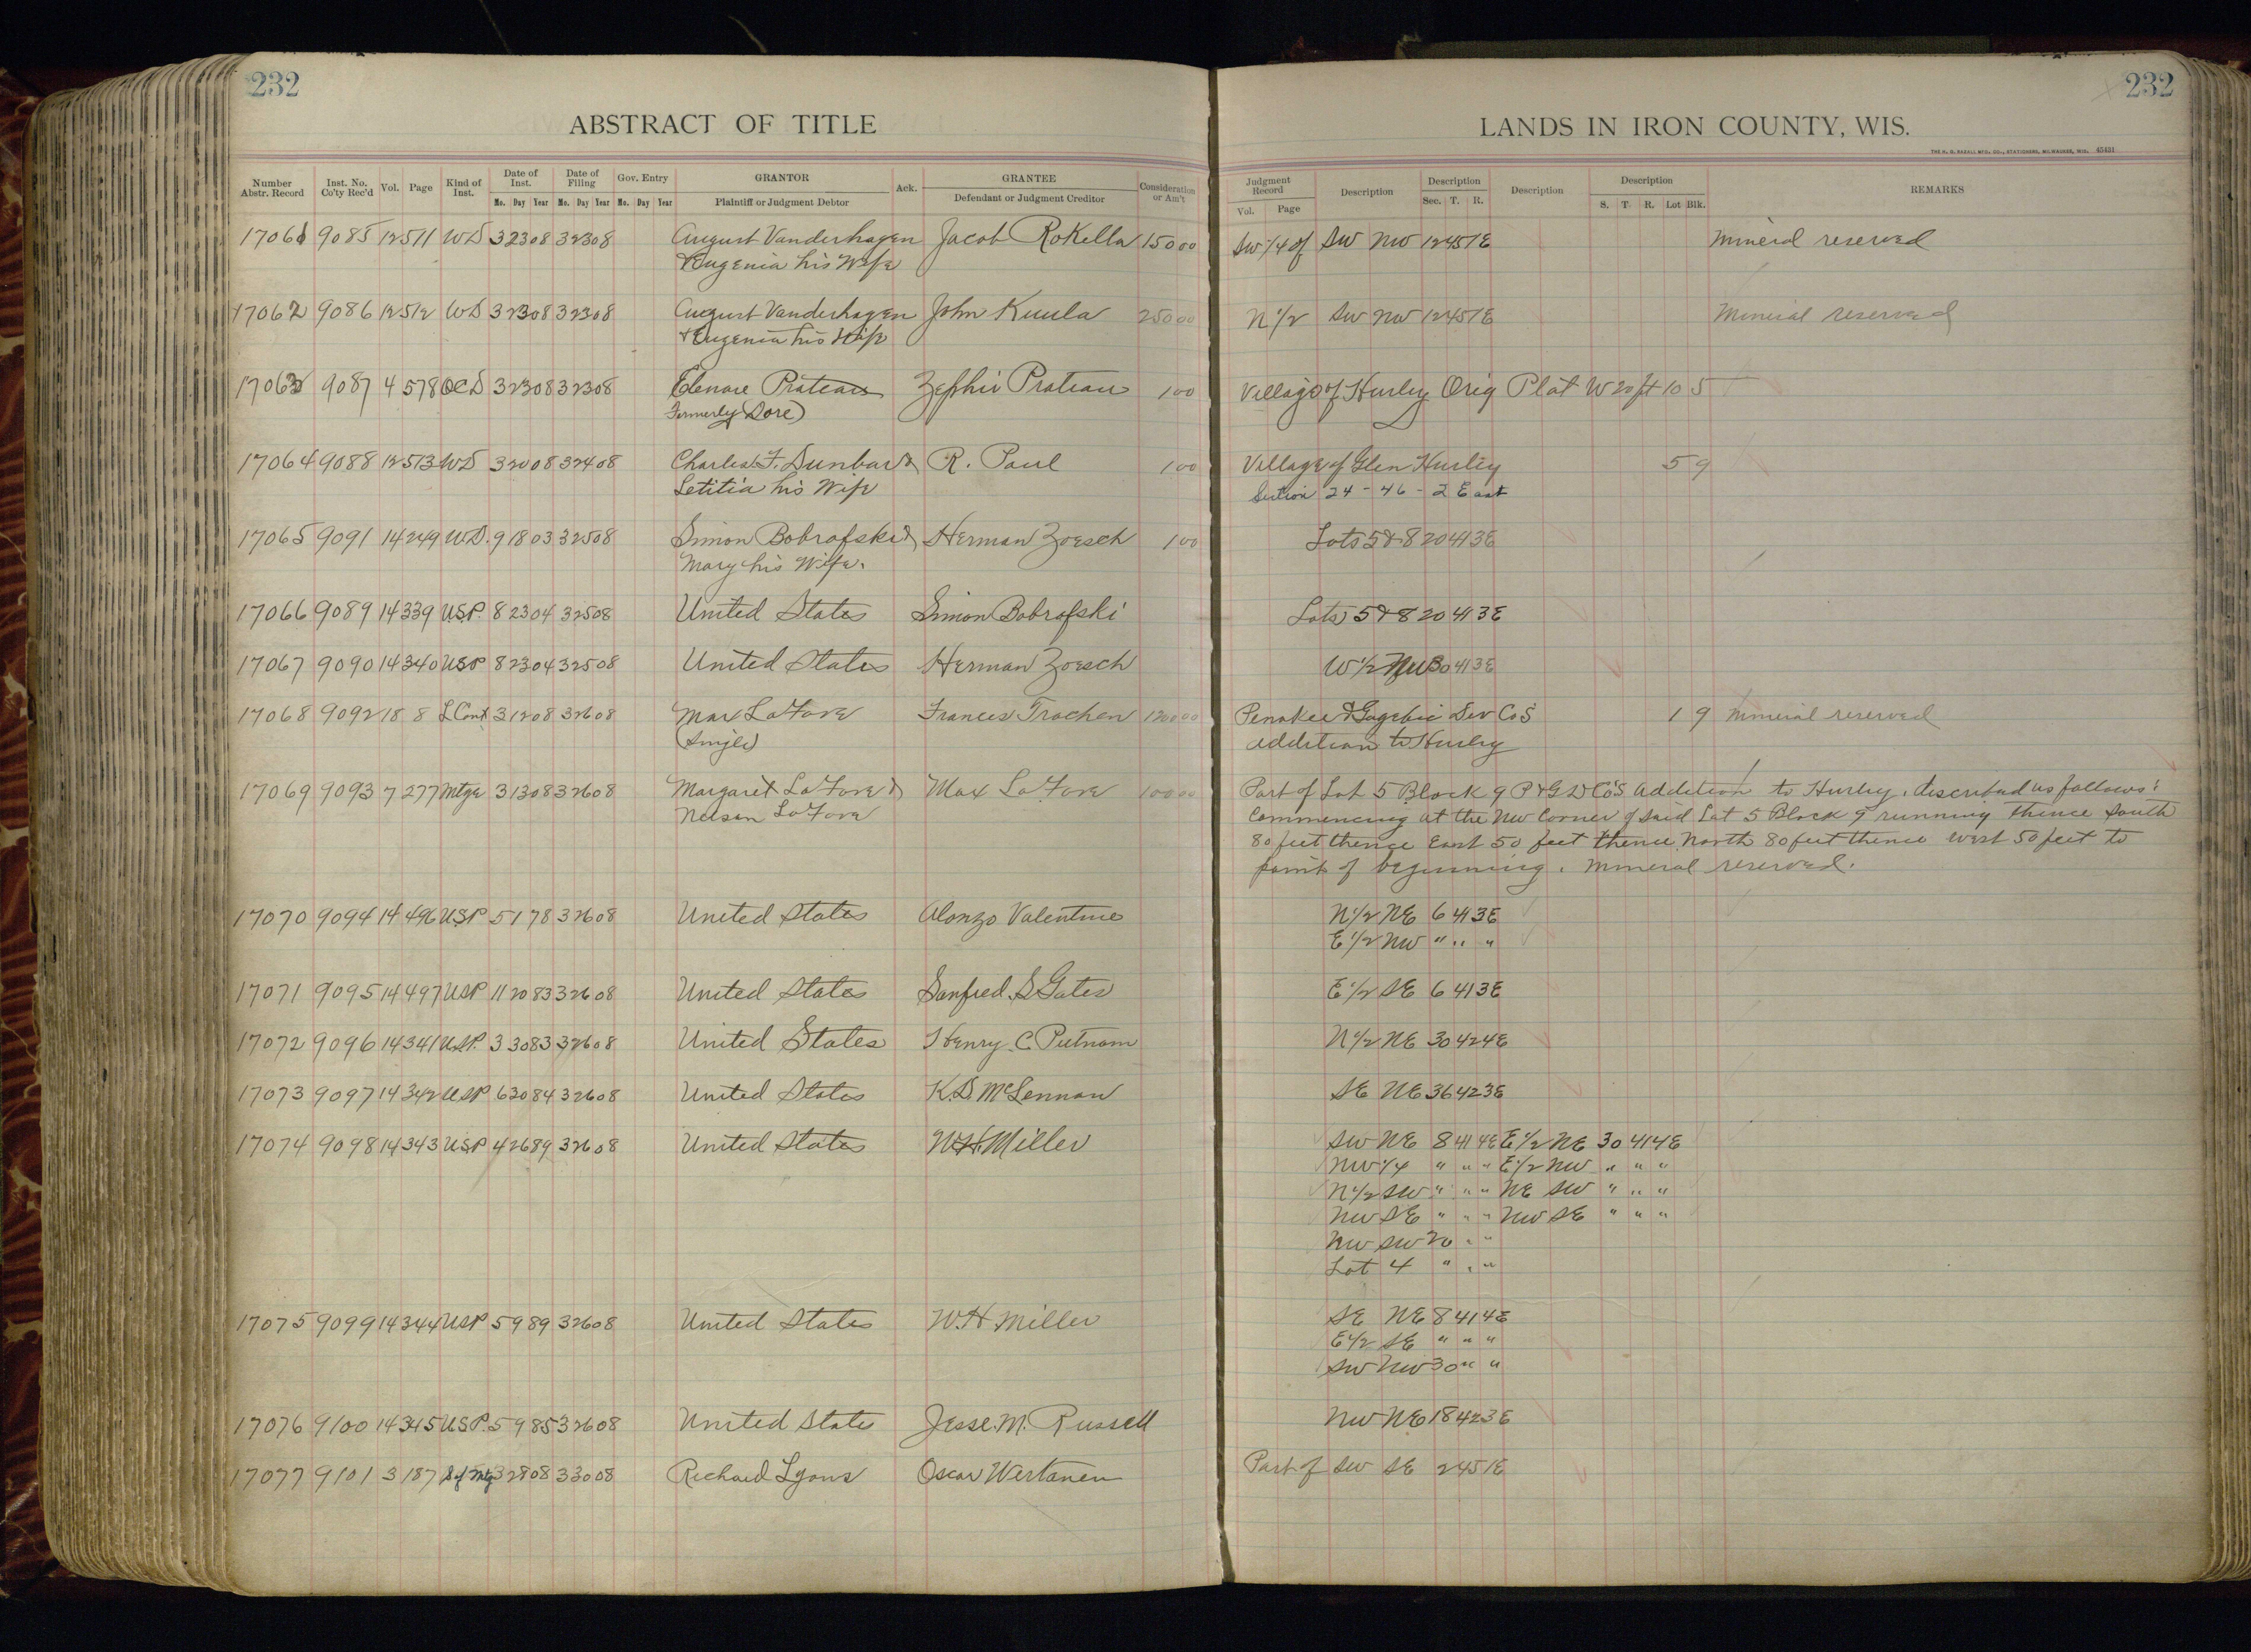 232
232
ABSTRACT OF TITLE
LANDS IN IRON COUNTY, WIS.
THE H. G. RAZALL MFG. CO., STATIONERS, MILWAUKEE, WIS. 45431
Number Abstr. Record Inst. No. Co'ty Rec'd Vol. Page Kind of Inst. Date of Inst. Mo. Day Year Date of Filing Mo. Day Year Gov. Entry Mo. Day Year GRANTOR Plaintiff or Judgment Debtor Ack. GRANTEE Defendant or Judgment Creditor Consideration or Am't
Judgment Record Vol. Page Description Description Sec. T. R. Description Description S. T. R. Lot Blk. REMARKS
17061 9085 12 511 WD 3 23 08 3 23 08 August Vanderhagen Jacob Rokella 150 00 SW 1/4 of SW NW 12 45 1E Mineral reserved
& Eugenia his Wife
17062 9086 12 512 WD 3 23 08 3 23 08 August Vanderhagen John Kuula 250 00 N 1/2 SW NW 12 45 1E Mineral reserved
& Eugenia his Wife
17063 9087 4 578 QCD 3 23 08 3 23 08 Elenore Prateau Zephir Prateau 1 00 Village of Hurley Orig Plat W 20 ft 10 5
Formerly (Dore)
17064 9088 12 513 WD 3 20 08 3 24 08 Charles F. Dunbar & R. Paul 1 00 Village of Glen Hurley 5 9
Letitia his Wife Section 24 - 46 - 2 East
17065 9091 14 249 WD. 9 18 03 3 25 08 Simon Bobrofski & Herman Zoesch 1 00 Lots 5 & 8 20 41 3E
Mary his Wife.
17066 9089 14 339 U.S.P. 8 23 04 3 25 08 United States Simon Bobrofski Lots 5 & 8 20 41 3E
17067 9090 14 340 USP 8 23 04 3 25 08 United States Herman Zoesch W 1/2 NW 30 41 3E
17068 9092 18 8 L Cont 3 12 08 3 26 08 Max LaFave Frances Trochen 1200 00 Penokee & Gogebic Dev Co's 1 9 Mineral reserved
(Single) Addition to Hurley
17069 9093 7 277 Mtge 3 13 08 3 26 08 Margaret LaFave & Max LaFave 100 00 Part of Lot 5 Block 9 P & G D Co's Addition to Hurley, described as follows:
Nelson LaFave Commencing at the NW Corner of said Lot 5 Block 9 running thence South
80 feet thence East 50 feet thence North 80 feet thence West 50 feet to
point of beginning. Mineral reserved.
17070 9094 14 496 USP 5 1 78 3 26 08 United States Alonzo Valentine N 1/2 NE 6 41 3E
E 1/2 NW " " "
17071 9095 14 497 USP 11 20 83 3 26 08 United States Sanfred S Gates E 1/2 SE 6 41 3E
17072 9096 14 341 U.S.P. 3 30 83 3 26 08 United States Henry C. Putnam N 1/2 NE 30 42 4E
17073 9097 14 342 USP 6 30 84 3 26 08 United States K.D. McLennan SE NE 36 42 3E
17074 9098 14 343 U.S.P 4 26 89 3 26 08 United States W.H. Miller SW NE 8 41 4E E 1/2 NE 30 41 4E
NW 1/4 " " " E 1/2 NW " " "
N 1/2 SW " " " NE SW " " "
NW SE " " " NW SE " " "
NW SW 20 " "
Lot 4 " " "
17075 9099 14 344 USP 5 9 89 3 26 08 United States W.H Miller SE NE 8 41 4E
E 1/2 SE " " "
SW NW 30 " "
17076 9100 14 345 U.S.P. 5 9 85 3 26 08 United State Jesse. M. Russell NW NE 18 42 3E
17077 9101 3 187 3 28 08 3 30 08 Richard Lyons Oscar Wertanen Part of SW SE 2 45 1E